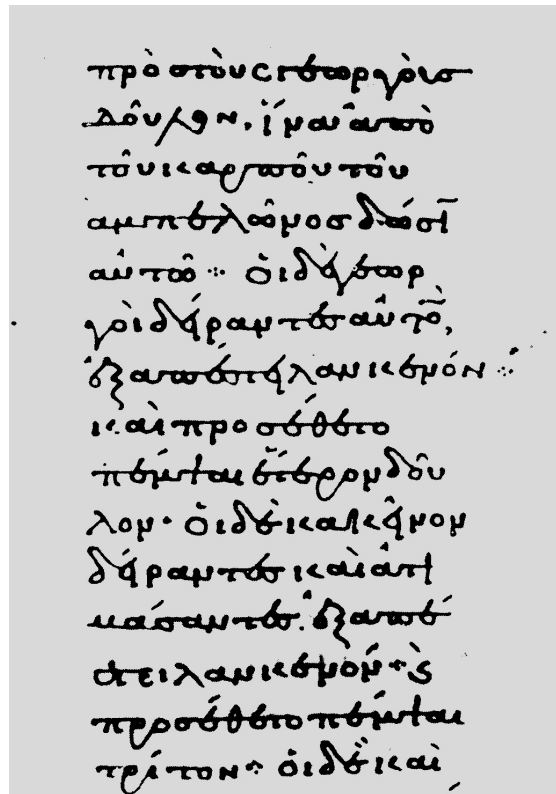 πρὸς τοὺς γεωργοὺς
δοῦλον, ἵνα ἀπὸ
τοῦ καρποῦ τοῦ
ἀμπελῶνος δώσῑ
αὐτῶ ⁘ ὁι δὲ γεωρ
γὸι δείραντες αὐτὸ̄,
ἐξαπέστειλαν κενόν ⁘
καὶ προσέθετο
πέμψαι ἕτερον δοῦ
λον· ὁι δὲ κακεῖνον
δείραντες καὶ ἀτι
μάσαντες· ἐξαπέ
στειλαν κενόν ⁘ ϗ
προσέθετο πέμψαι
τρίτον ⁘ ὁι δὲ καὶ